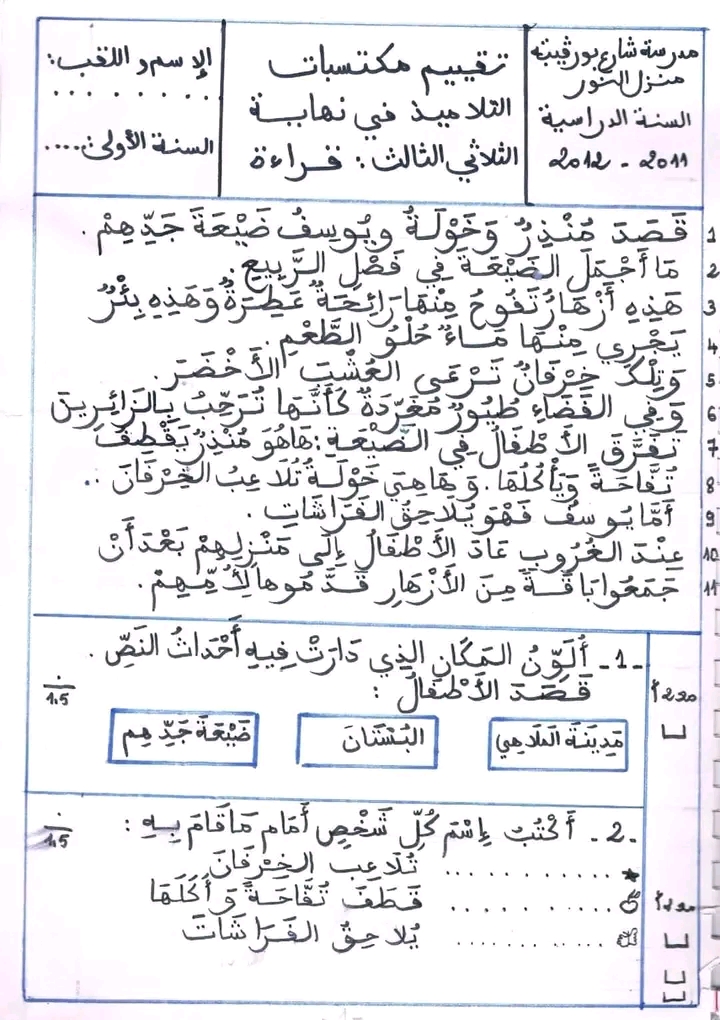 مدرسة شارع بورقيبة
منزل النور
السنة الدراسية
2011 - 2012
تقييم مكتسبات
التلاميذ في نهاية
الثلاثي الثالث: قراءة
الإسم و اللقب:
. . . . . . . . .
السنة الأولى:....
1 قَصَدَ مُنْذِرُ وَخَوْلَةُ ويُوسِفُ ضَيْعَةَ جَدِّهِمْ.
2 مَا أَجْمَلَ الضَّيْعَةَ فِي فَصْلِ الرَّبِيعِ.
3 هَذِهِ أَزْهَارُ تَفُوحُ مِنْهَا رَائِحَةُ عَطِرَةُ وَهَذِهِ بِئْرُ
4 يَجْرِي مِنْهَا مَاءُ حُلْوُ الطَّعْمِ.
5 وَتِلْكَ خِرْفَانُ تَرْعَى العُشْبَ الأَخْضَرَ.
6 وَفِي الفَضَاءِ طُيُورُ مُغَرِّدَةُ كَأَنَّهَا تُرَحِّبُ بِالزَائِرِينَ
7 تَفَرَّقَ الأَطْفَالُ فِي الضَّيْعَةِ: هَاهُوَ مُنْذِرُ يَقْطِفُ
8 تُفَّاحَةً وَيَأْكُلُهَا. وَهَاهِيَ خَوْلَةُ تُلَاعِبُ الخِرْفَانَ ..
9 أَمَّا يُوسِفُ فَهْوَ يُلَاحِقُ الفَرَاشَاتِ.
10 عِنْدَ الغُرُوبِ عَادَ الأَطْفَالُ إِلَى مَنْزِلِهِمْ بَعْدَ أَنْ
11 جَمَعُوا بَاقَةً مِنَ الأَزْهَارِ قَدَّمُوهَا لِأُمِّهِمْ.
-1- أُلَوِّنُ المَكَانَ الذِي دَارَتْ فِيهِ أَحْدَاثُ النَصِّ.
قَصَدَ الأَطْفَالُ:
مَدِينَةَ المَلَاهِي
البُسْتَانَ
ضَيْعَةَ جَدِّهِم
1.5
-2- أَكْتُبُ إِسْمَ كُلِّ شَخْصٍ أَمَامَ مَا قَامَ بِهِ:
........... تُلَاعِب الخِرْفَانَ
........... قَطَفَ تُفَّاحَةً وَأَكَلَهَا
........... يُلَاحِقُ الفَرَاشَاتَ
1.5